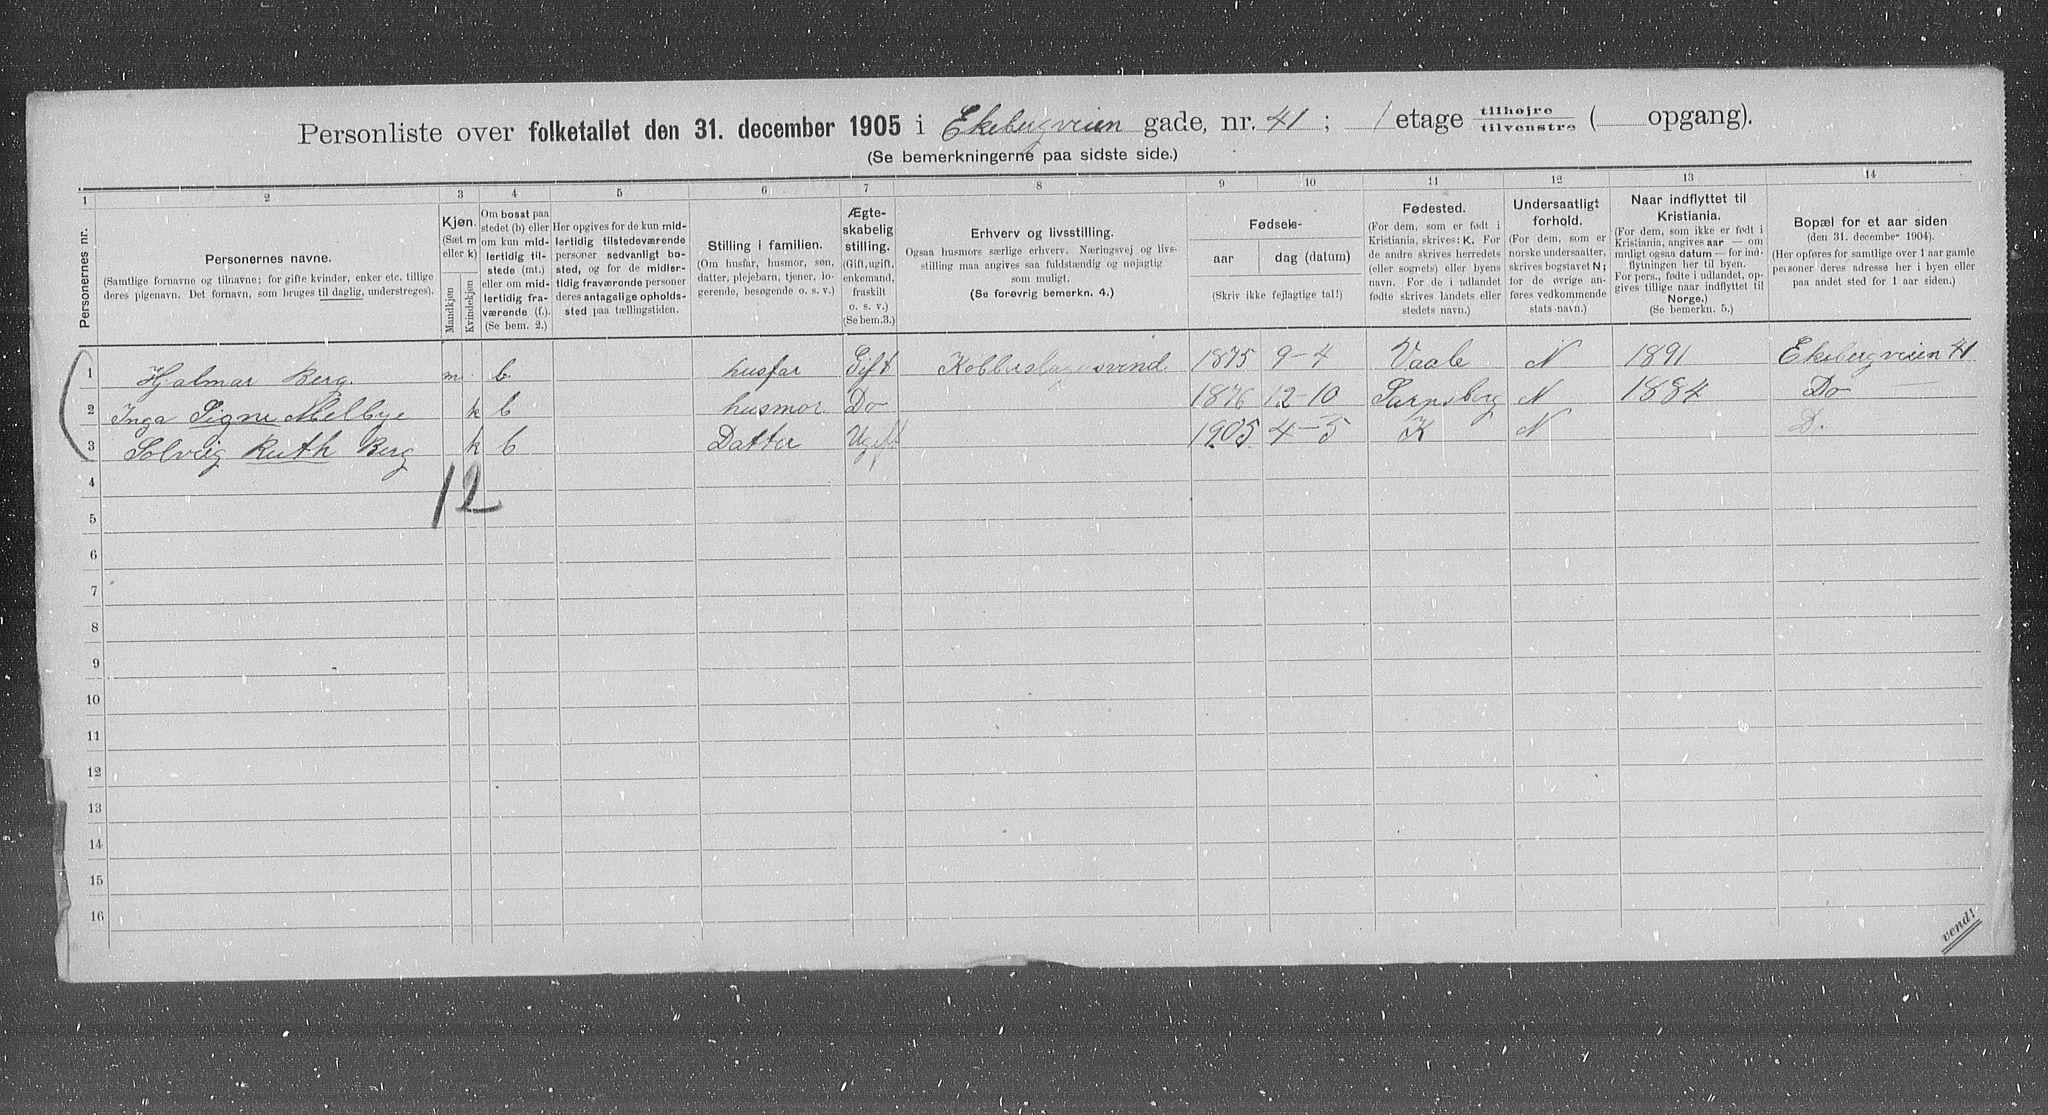 Personliste over folketallet den 31. december 1905 i Ekebergveien gade, nr. 41; 1 etage tilhøjre tilvenstre ( opgang).
(Se bemerkningerne paa sidste side.)
1 2 3 4 5 6 7 8 9 10 11 12 13 14
Personernes nr.
Personernes navne.
(Samtlige fornavne og tilnavne; for gifte kvinder, enker etc. tillige
deres pigenavn. Det fornavn, som bruges til daglig, understreges).
Kjøn.
(Sæt m
eller k)
Mandkjøn
Kvindekjøn
Om bosat paa
stedet (b) eller
om kun mid-
lertidig til-
stede (mt.)
eller om mid-
lertidig fra-
værende (f.).
(Se bem. 2.)
Her opgives for de kun mid-
lertidig tilstedeværende
personer sedvanligt bo-
sted, og for de midler-
tidig fraværende personer
deres antagelige opholds-
sted paa tællingstiden.
Stilling i familien.
(Om husfar, husmor, søn,
datter, plejebarn, tjener, lo-
gerende, besøgende o. s. v.)
Ægte-
skabelig
stilling.
(Gift, ugift,
enkemand,
fraskilt
o. s. v.)
(Se bem. 3.)
Erhverv og livsstilling.
Ogsaa husmors særlige erhverv. Næringsvej og livs-
stilling maa angives saa fuldstændig og nøjagtig
som muligt.
(Se forøvrig bemerkn. 4.)
Fødsels-
aar dag (datum)
(Skriv ikke fejlagtige tal!)
Fødested.
(For dem, som er født i
Kristiania, skrives: K. For
de andre skrives herredets
(eller sognets) eller byens
navn. For de i udlandet
fødte skrives landets eller
stedets navn.)
Undersaatligt
forhold.
(For dem, som er
norske undersaatter,
skrives bogstavet N;
for de øvrige an-
føres vedkommende
stats navn.)
Naar indflyttet til
Kristiania.
(For dem, som ikke er født i
Kristiania, angives aar — om
muligt ogsaa datum — for ind-
flytningen her til byen.
For pers., fødte i udlandet, op-
gives tillige naar indflyttet til
Norge.)
(Se bemerkn. 5.)
Bopæl for et aar siden
(den 31. december 1904).
(Her opføres for samtlige over 1 aar gamle
personer deres adresse her i byen eller
paa andet sted for 1 aar siden.)
1 Hjalmar Berg. m. b husfar Gift Kobberslagersvend 1875 9-4 Vaale N 1891 Ekebergveien 41
2 Inga Signe Melbye k b husmor Do 1876 12-10 Sarpsborg N 1884 Do
3 Solvieg Ruth Berg k b Datter Ugift 1905 4-5 K N D.
12
4
5
6
7
8
9
10
11
12
13
14
15
16
vend!